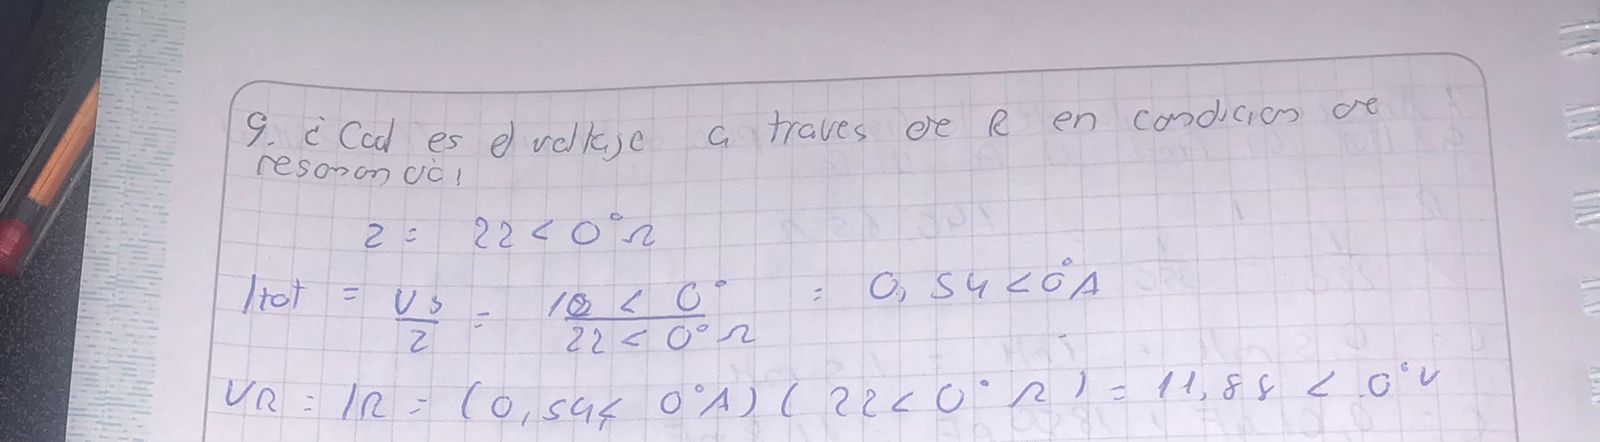 9. ¿Cual es el voltaje a traves de R en condicion de
resonancia,
Z = 22 < 0° Ω
Itot = Vs/Z = 12 < 0° / 22 < 0° Ω = 0,54 < 0° A
VR = IR = (0,54 < 0° A) (22 < 0° Ω) = 11,88 < 0° V